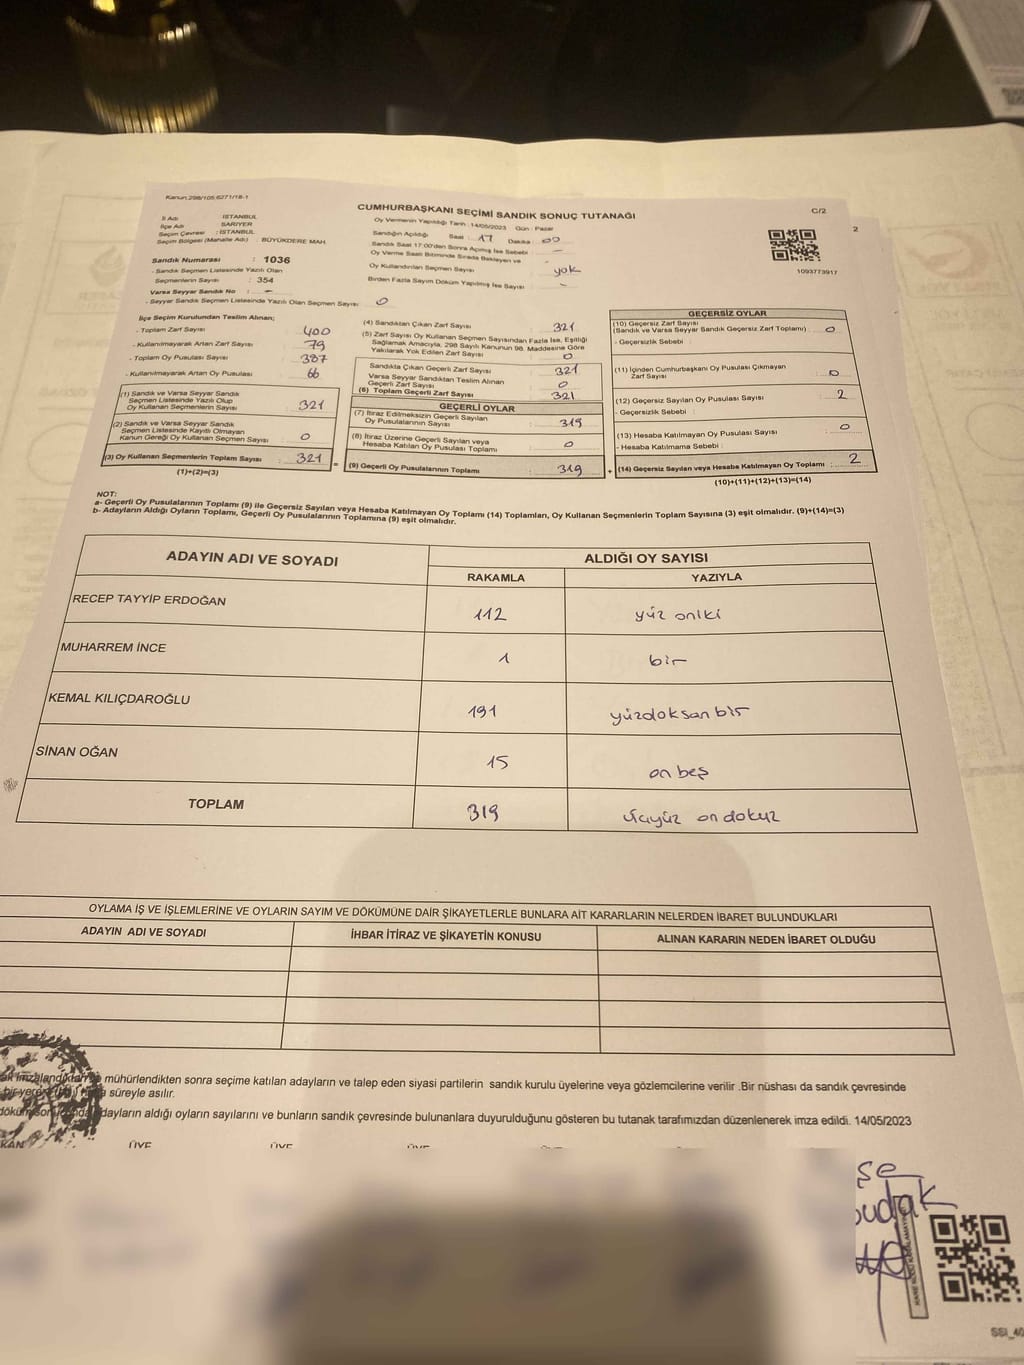 Kanun:298/105,6271/18-1
CUMHURBAŞKANI SEÇİMİ SANDIK SONUÇ TUTANAĞI
C/2
2
İl Adı : İSTANBUL
İlçe Adı : SARIYER
Seçim Çevresi : İSTANBUL
Seçim Bölgesi (Mahalle Adı) : BÜYÜKDERE MAH.
Sandık Numarası : 1036
- Sandık Seçmen Listesinde Yazılı Olan
Seçmenlerin Sayısı : 354
Varsa Seyyar Sandık No : -
- Seyyar Sandık Seçmen Listesinde Yazılı Olan Seçmen Sayısı : 0
Oy Vermenin Yapıldığı Tarih : 14/05/2023 Gün : Pazar
Sandığın Açıldığı Saat : 17 Dakika : 00
Sandık Saat 17:00'den Sonra Açılmış İse Sebebi : -
Oy Verme Saati Bitiminde Sırada Bekleyen ve
Oy Kullandırılan Seçmen Sayısı : yok
Birden Fazla Sayım Döküm Yapılmış İse Sayısı : -
1093773917
İlçe Seçim Kurulundan Teslim Alınan;
- Toplam Zarf Sayısı : 400
- Kullanılmayarak Artan Zarf Sayısı : 79
- Toplam Oy Pusulası Sayısı : 387
- Kullanılmayarak Artan Oy Pusulası : 66
(1) Sandık ve Varsa Seyyar Sandık
Seçmen Listesinde Yazılı Olup
Oy Kullanan Seçmenlerin Sayısı : 321
(2) Sandık ve Varsa Seyyar Sandık
Seçmen Listesinde Kayıtlı Olmayan
Kanun Gereği Oy Kullanan Seçmen Sayısı : 0
(3) Oy Kullanan Seçmenlerin Toplam Sayısı : 321
(1)+(2)=(3)
(4) Sandıktan Çıkan Zarf Sayısı : 321
(5) Zarf Sayısı Oy Kullanan Seçmen Sayısından Fazla İse, Eşitliği
Sağlamak Amacıyla, 298 Sayılı Kanunun 98. Maddesine Göre
Yakılarak Yok Edilen Zarf Sayısı : 0
Sandıkta Çıkan Geçerli Zarf Sayısı : 321
Varsa Seyyar Sandıktan Teslim Alınan
Geçerli Zarf Sayısı : 0
(6) Toplam Geçerli Zarf Sayısı : 321
GEÇERLİ OYLAR
(7) İtiraz Edilmeksizin Geçerli Sayılan
Oy Pusulalarının Sayısı : 319
(8) İtiraz Üzerine Geçerli Sayılan veya
Hesaba Katılan Oy Pusulası Toplamı : 0
(9) Geçerli Oy Pusulalarının Toplamı : 319
GEÇERSİZ OYLAR
(10) Geçersiz Zarf Sayısı
(Sandık ve Varsa Seyyar Sandık Geçersiz Zarf Toplamı) : 0
- Geçersizlik Sebebi :
(11) İçinden Cumhurbaşkanı Oy Pusulası Çıkmayan
Zarf Sayısı : 0
(12) Geçersiz Sayılan Oy Pusulası Sayısı : 2
- Geçersizlik Sebebi :
(13) Hesaba Katılmayan Oy Pusulası Sayısı : 0
- Hesaba Katılmama Sebebi :
(14) Geçersiz Sayılan veya Hesaba Katılmayan Oy Toplamı : 2
(10)+(11)+(12)+(13)=(14)
NOT:
a- Geçerli Oy Pusulalarının Toplamı (9) ile Geçersiz Sayılan veya Hesaba Katılmayan Oy Toplamı (14) Toplamları, Oy Kullanan Seçmenlerin Toplam Sayısına (3) eşit olmalıdır. (9)+(14)=(3)
b- Adayların Aldığı Oyların Toplamı, Geçerli Oy Pusulalarının Toplamına (9) eşit olmalıdır.
ADAYIN ADI VE SOYADI ALDIĞI OY SAYISI
RAKAMLA YAZIYLA
RECEP TAYYİP ERDOĞAN 112 yüz oniki
MUHARREM İNCE 1 bir
KEMAL KILIÇDAROĞLU 191 yüzdoksan bir
SİNAN OĞAN 15 on beş
TOPLAM 319 üçyüz on dokuz
OYLAMA İŞ VE İŞLEMLERİNE VE OYLARIN SAYIM VE DÖKÜMÜNE DAİR ŞİKAYETLERLE BUNLARA AİT KARARLARIN NELERDEN İBARET BULUNDUKLARI
ADAYIN ADI VE SOYADI İHBAR İTİRAZ VE ŞİKAYETİN KONUSU ALINAN KARARIN NEDEN İBARET OLDUĞU
mühürlendikten sonra seçime katılan adayların ve talep eden siyasi partilerin sandık kurulu üyelerine veya gözlemcilerine verilir .Bir nüshası da sandık çevresinde
süreyle asılır.
adayların aldığı oyların sayılarını ve bunların sandık çevresinde bulunanlara duyurulduğunu gösteren bu tutanak tarafımızdan düzenlenerek imza edildi. 14/05/2023
KAN ÜYE ÜYE
şe
budak
SSI_40